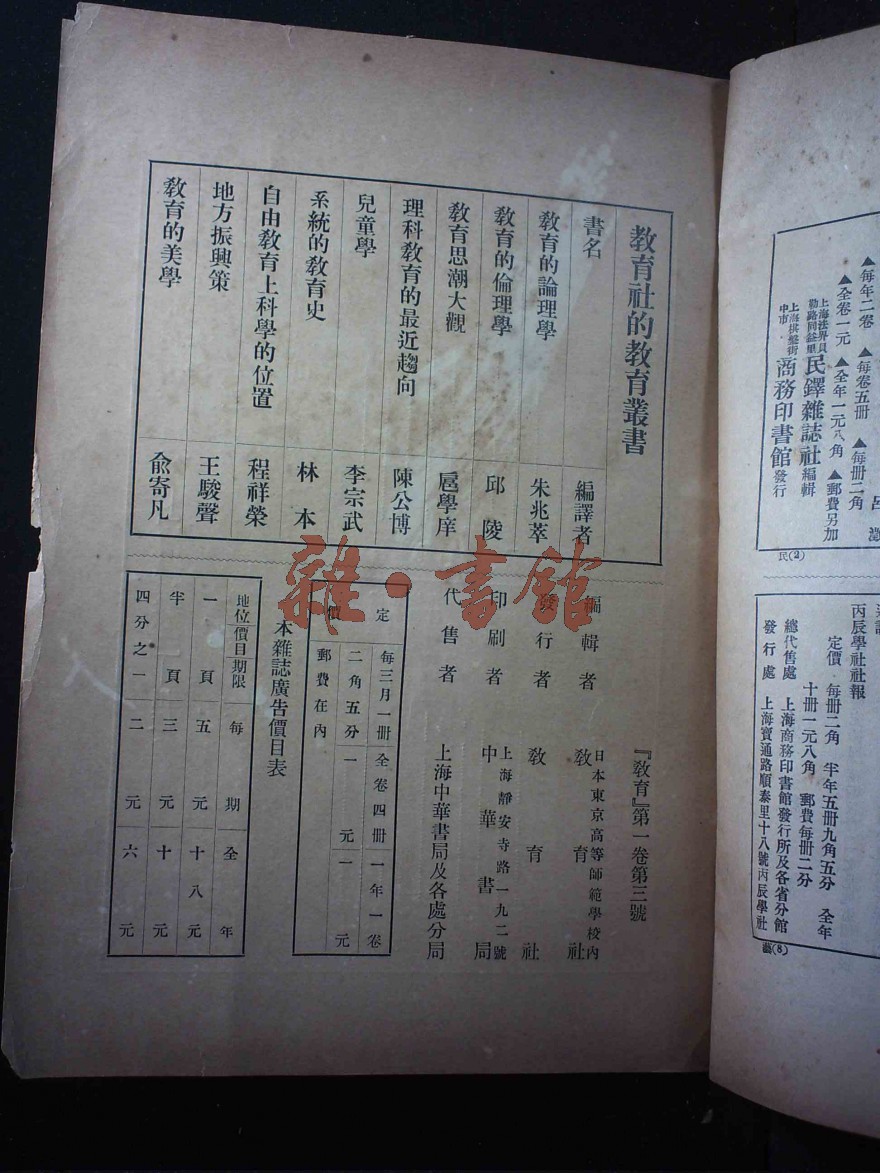 教育社的教育叢書
書名 編譯者
教育的論理學 朱兆萃
教育的倫理學 邱陵
教育思潮大觀 扈學庠
理科教育的最近趨向 陳公博
兒童學 李宗武
系統的教育史 林本
自由教育上科學的位置 程祥榮
地方振興策 王駿聲
教育的美學 俞寄凡
『教育』第一卷第三號
編輯者 日本東京高等師範學校內 教育社
發行者 教育社
印刷者 上海靜安寺路一九二號 中華書局
代售者 上海中華書局及各處分局
定價
每三月一冊 全卷四冊 一年一卷
二角五分 一元 一元
郵費在內
本雜誌廣告價目表
地位 價目 期限 每期 全年
一頁 五元 十八元
半頁 三元 十元
四分之一 二元 六元
雜·書館
▲每年二卷 ▲每卷五冊 ▲每冊二角
▲全卷一元 ▲全年一元八角 ▲郵費另加
上海法界貝勒路同益里 民鐸雜誌社 編輯
上海棋盤街中市 商務印書館 發行
民(2)
丙辰學社社報
定價 每冊二角 半年五冊九角五分 全年
十冊一元八角 郵費每冊二分
總代售處 上海商務印書館發行所及各省分館
發行處 上海寶通路順泰里十八號丙辰學社
藝(8)